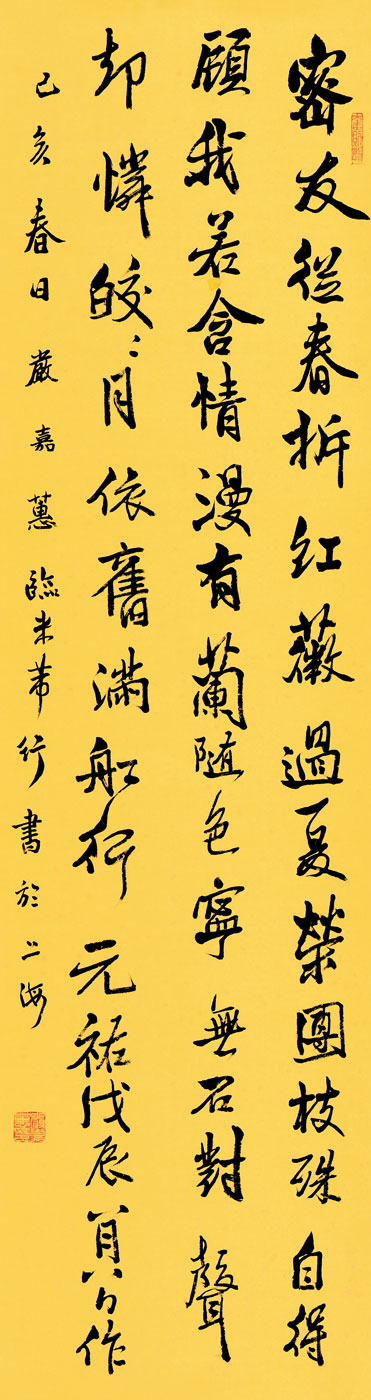 密友從春拆紅薇過夏榮團枝殊自得
顧我若含情漫有蘭隨色寧無石對聲
却憐皎〻月依舊滿船行元祐戊辰八月八日作
己亥春日嚴嘉蕙臨米芾行書於上海